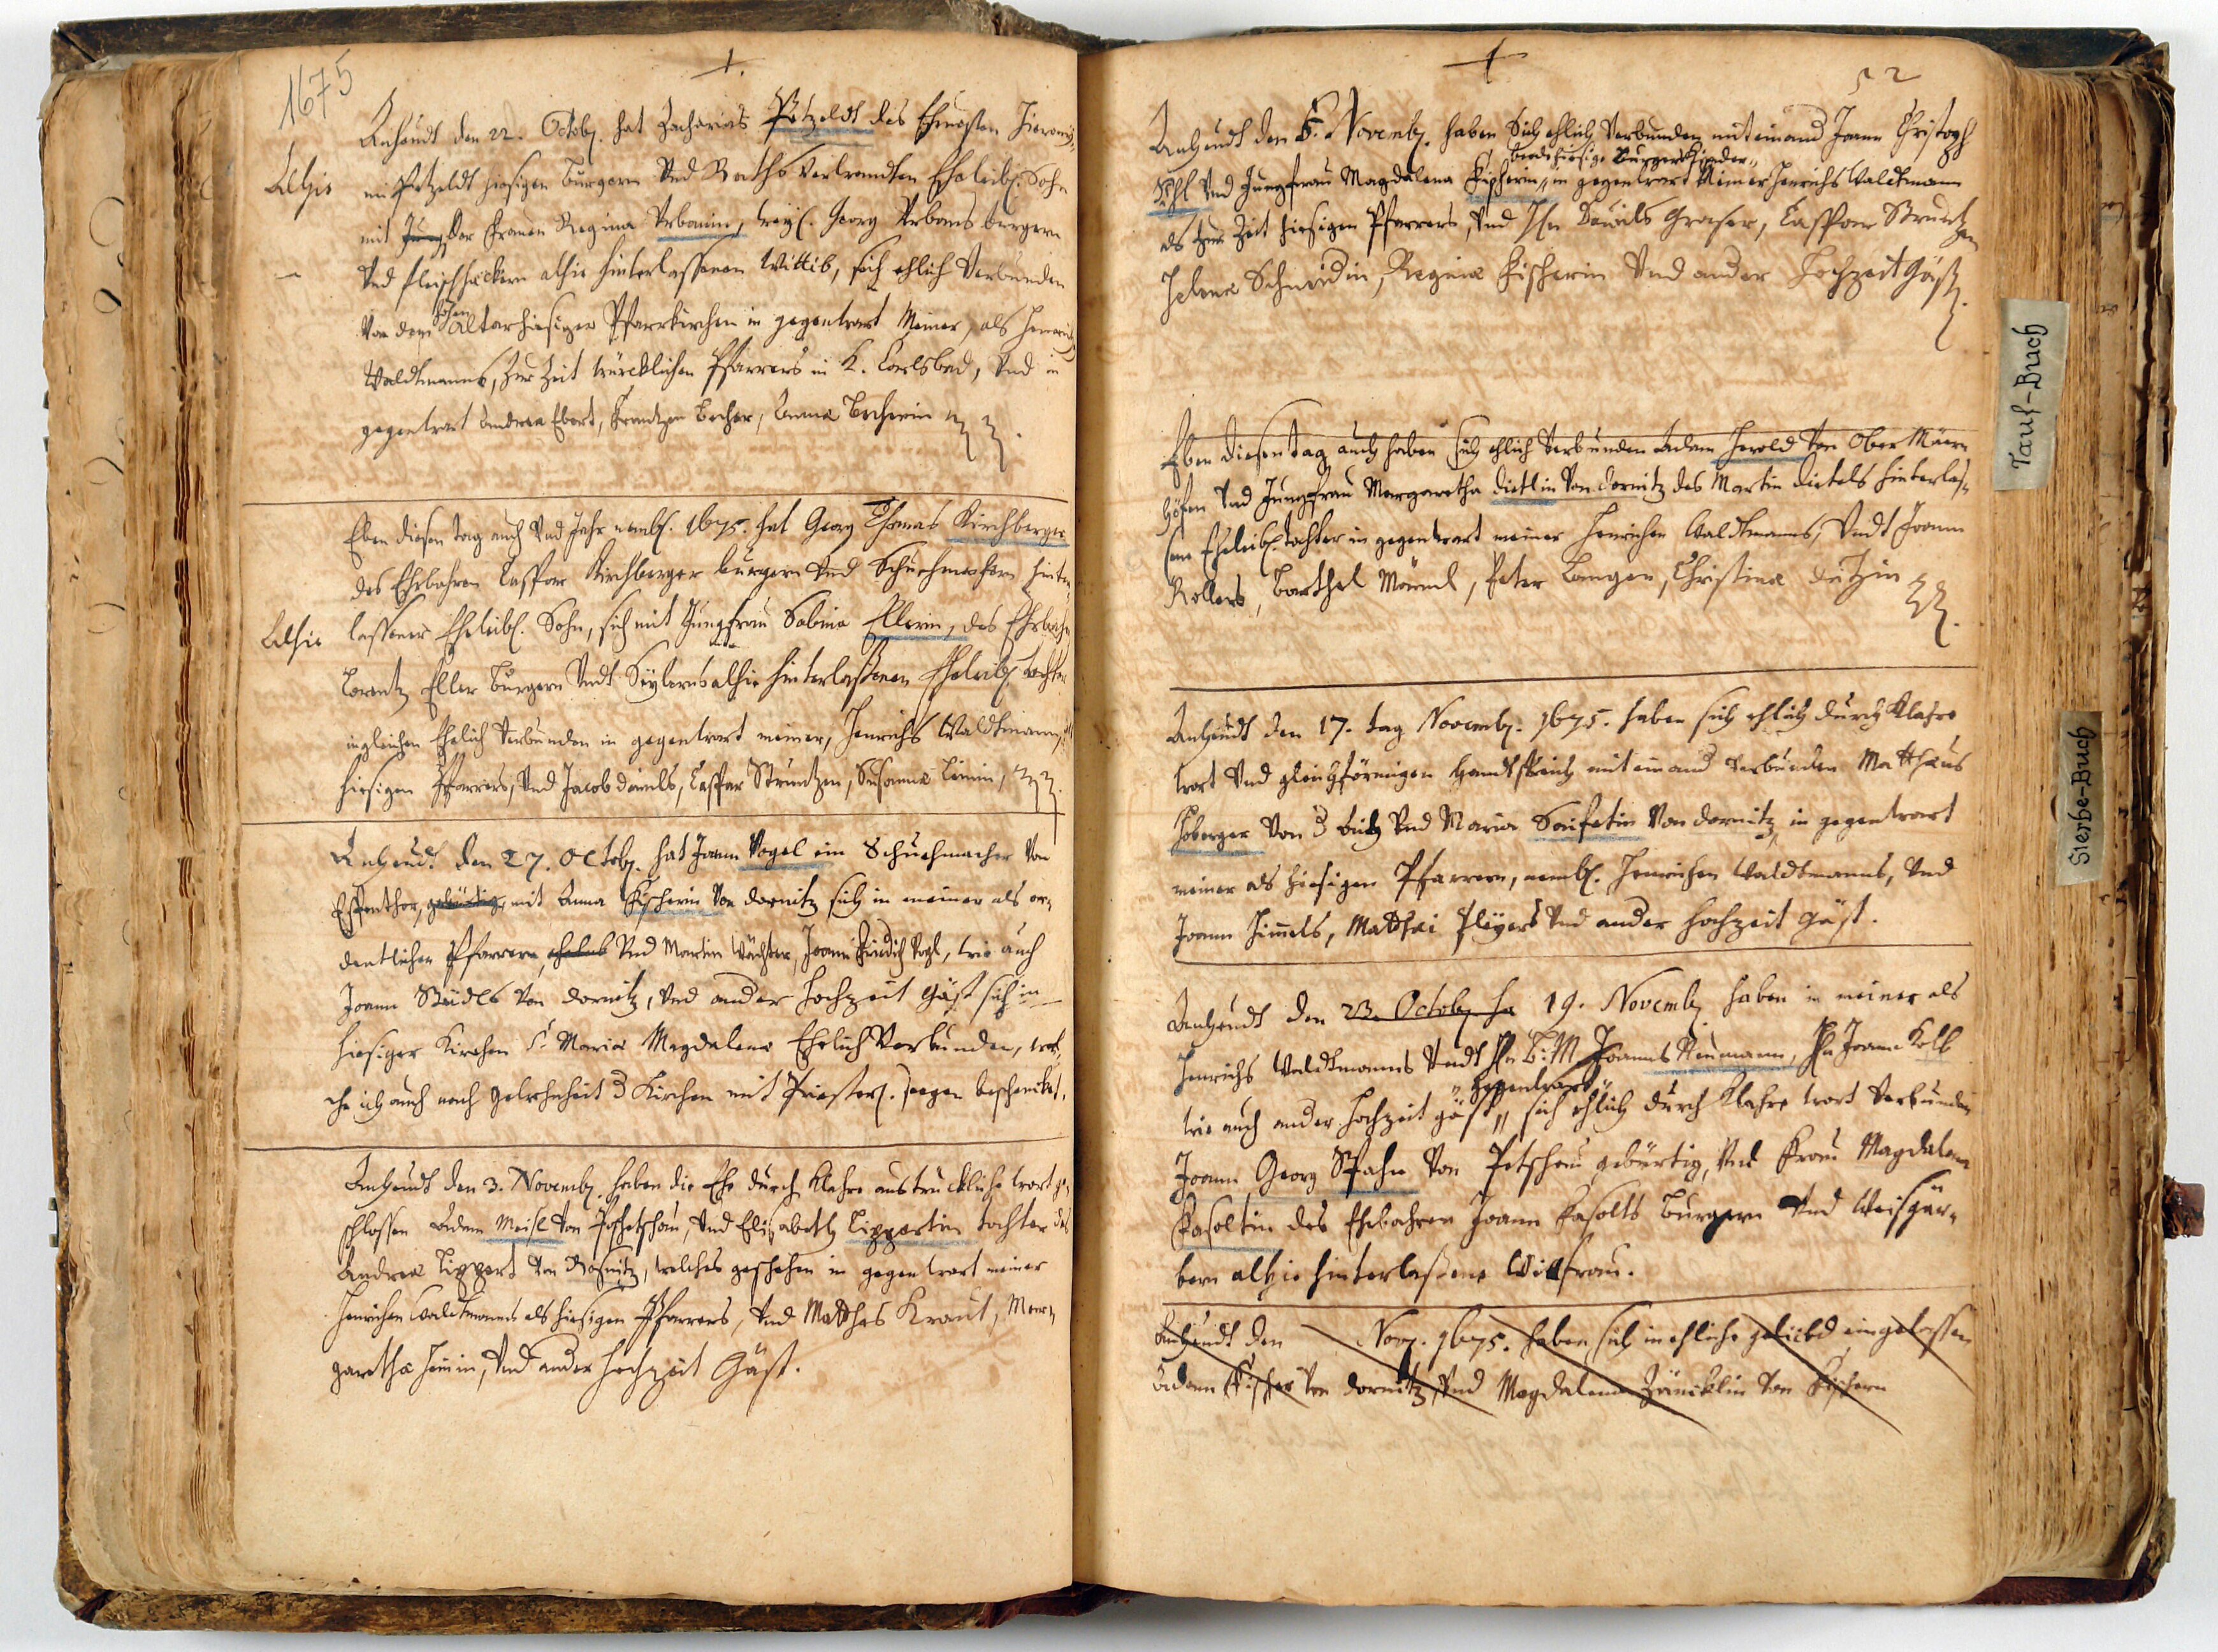 1675
Anheudt den 22. Octob. hat Zacharias Petzeldt des Ehrngsten Hierony-
Alhie
mi Petzeldt hiesigen Burgern Vnd Raths Verwandten Eheleibl. Sohn
mit der Frauen Regina Vrbanin, weyl. Georg Vrbans burgern
Vnd fleischhackern alhie hinterlassenen Wittib, sich ehlich Verbunden
Vor dem hohen Altar hiesiger Pfarrkirchen in gegenwart Meiner, als Henrichs
Waldtmanns, Zur Zeit würcklichen Pfarrers in K. Carlsbad, Vnd in
gegenwart Andrea Ebert, Frantzen Becher, Anna Becherin
Eben diesen tag auch Vnd Jahr nembl. 1675. hat Georg Thomas Kirchberger
des Ehrbahren Caspar Kirchberger burgern Vnd Schuchmachern hinter-
Alhie
lassener Eheleibl. Sohn, sich mit Jungfrau Sabina Ellerin, des Ehrbahrn
Lorentz Eller Burgern Vndt Seylers alhie hinterlaßenen Eheleibl. tochter
ingleichen Ehelich Verbunden in gegenwart meiner, Henrichs Waldtmann,
hiesigen Pfarrers, Vnd Jacob Daniels, Caspar Struntzen, Susanna
Anheudt den 27. Octob. hat Joann Vogel ein Schuchmacher Von
Espenthor, gebürtig, mit Anna Fischerin Von dornitz sich in meiner als or-
dentlichen Pfarrern, Vnd Martin Wächter, Joann Fridrich Vogl, wie auch
Joann Städls Von dornitz, Vnd ander Hochzeit Gäst sich in
hiesiger Kirchen S. Maria Magdalena Ehelich Verbunden, wel-
che ich auch nach gelegenheit d Kirchen mit Priesterl. seegen beschencket.
Anheudt den 3. Novemb. haben die Ehe durch Klahre austruckliche wort ge-
schlossen Adam Meisl Von Poschetschau, Vnd Elisabeth Lippertin tochter des
Andrea Lippert Von Rosnitz, welches geschehen in gegenwart meiner
Henrichen Waldtmanns als hiesigen Pfarrers, Vnd Matthes Kraut, Mar-
garetha Vnd ander hochzeit Gäst.
52
Anheudt den 5. Novemb. haben Sich ehlich Verbunden mit einand Joann Christoph
beede hiesige Burgers Kinder
Vnd Jungfrau Magdalena Fischerin, in gegenwart Meiner Henrichs Waldtmann
als zur Zeit hiesigen Pfarrers, Vnd Hn Davids Graser, Caspar Struntzen
Helena Schmidin, Regina Fischerin Vnd ander Hochzeit Gäst.
Eben diesen tag auch haben sich ehlich Verbunden Adam Herold Von Ober Mäer-
höfen Vnd Jungfrau Margaretha dietlin Von dornitz des Martin dietels hinterlas-
sene Eheleibl. tochter in gegenwart meiner Henrichen Waldtmanns, Vndt Joann
Rollers, Barthel Peter Langen, Christina
Anheudt den 17. tag Novemb. 1675. haben sich ehlich durch Klahre
wort Vnd gleichförmigen handtstreich mit einand Verbunden Matthäus
Heberger Von Vnd Maria Saifetin Von dornitz, in gegenwart
meiner als hiesigen Pfarrern, nembl. Henrichen Waldtmanns, Vnd
Joann Himels, Matthäi Pleyers Vnd ander hochzeit Gäst.
Anheudt den 23. Octob ha 19. Novemb. haben in meiner als
Henrichs Waldtmanns Vndt Hn B: M Joannes Neumann, Hn Joann Kolb
gegenwart
wie auch ander hochzeit gäst, sich ehlich durch Klahre wort Verbunden
Joann Georg Spahn Von Petschau gebürtig, Vnd Frau Magdalena
Fasoltin des Ehrbahren Joann Fasolts Burgern Vnd Weisgär-
bern alhie hinterlaßene Witfrau.
Anheudt den Nov. 1675. haben sich in ehliche gelübd eingelassen
Adam Fischer Von dornitz, Vnd Magdalena Von Fischern
Tauf-Buch
Sterbe-Buch